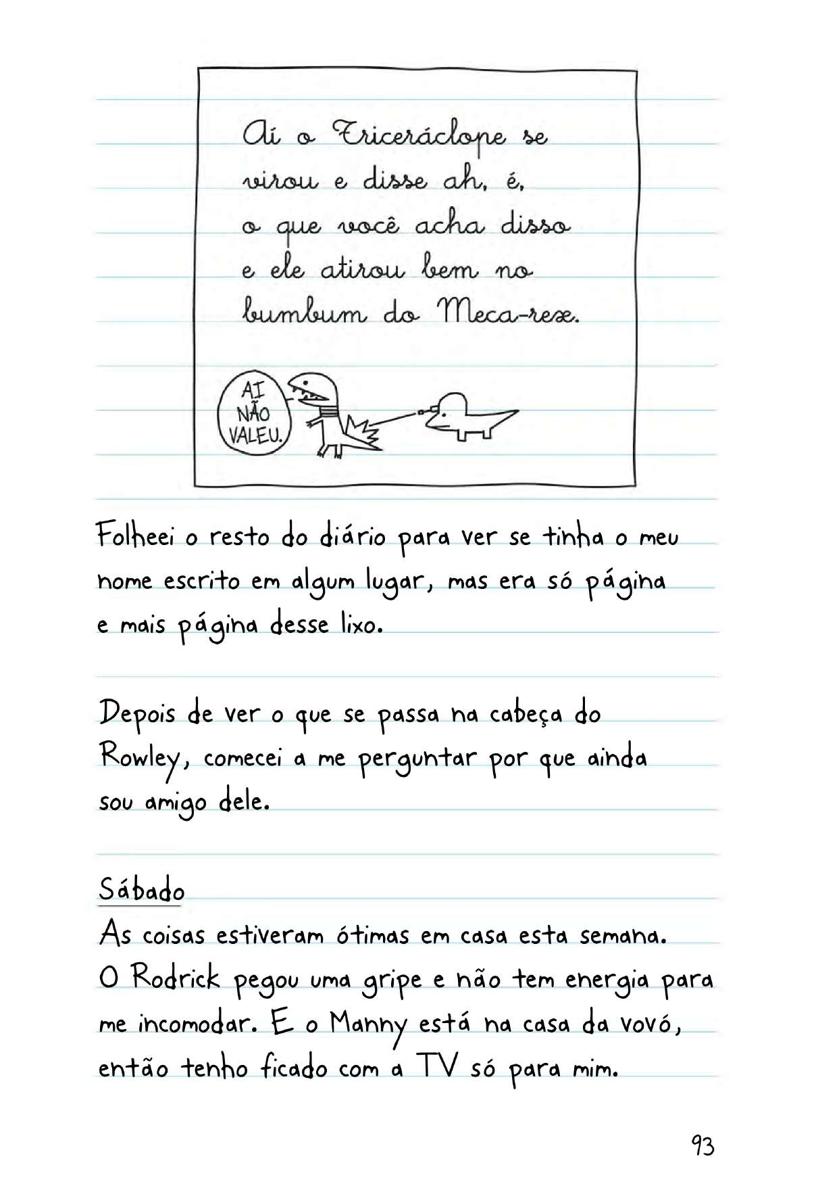 Aí o Triceráclope se
virou e disse ah, é,
o que você acha disso
e ele atirou bem no
bumbum do Meca-rex.
AI
NÃO
VALEU.
Folheei o resto do diário para ver se tinha o meu
nome escrito em algum lugar, mas era só página
e mais página desse lixo.
Depois de ver o que se passa na cabeça do
Rowley, comecei a me perguntar por que ainda
sou amigo dele.
Sábado
As coisas estiveram ótimas em casa esta semana.
O Rodrick pegou uma gripe e não tem energia para
me incomodar. E o Manny está na casa da vovó,
então tenho ficado com a TV só para mim.
93